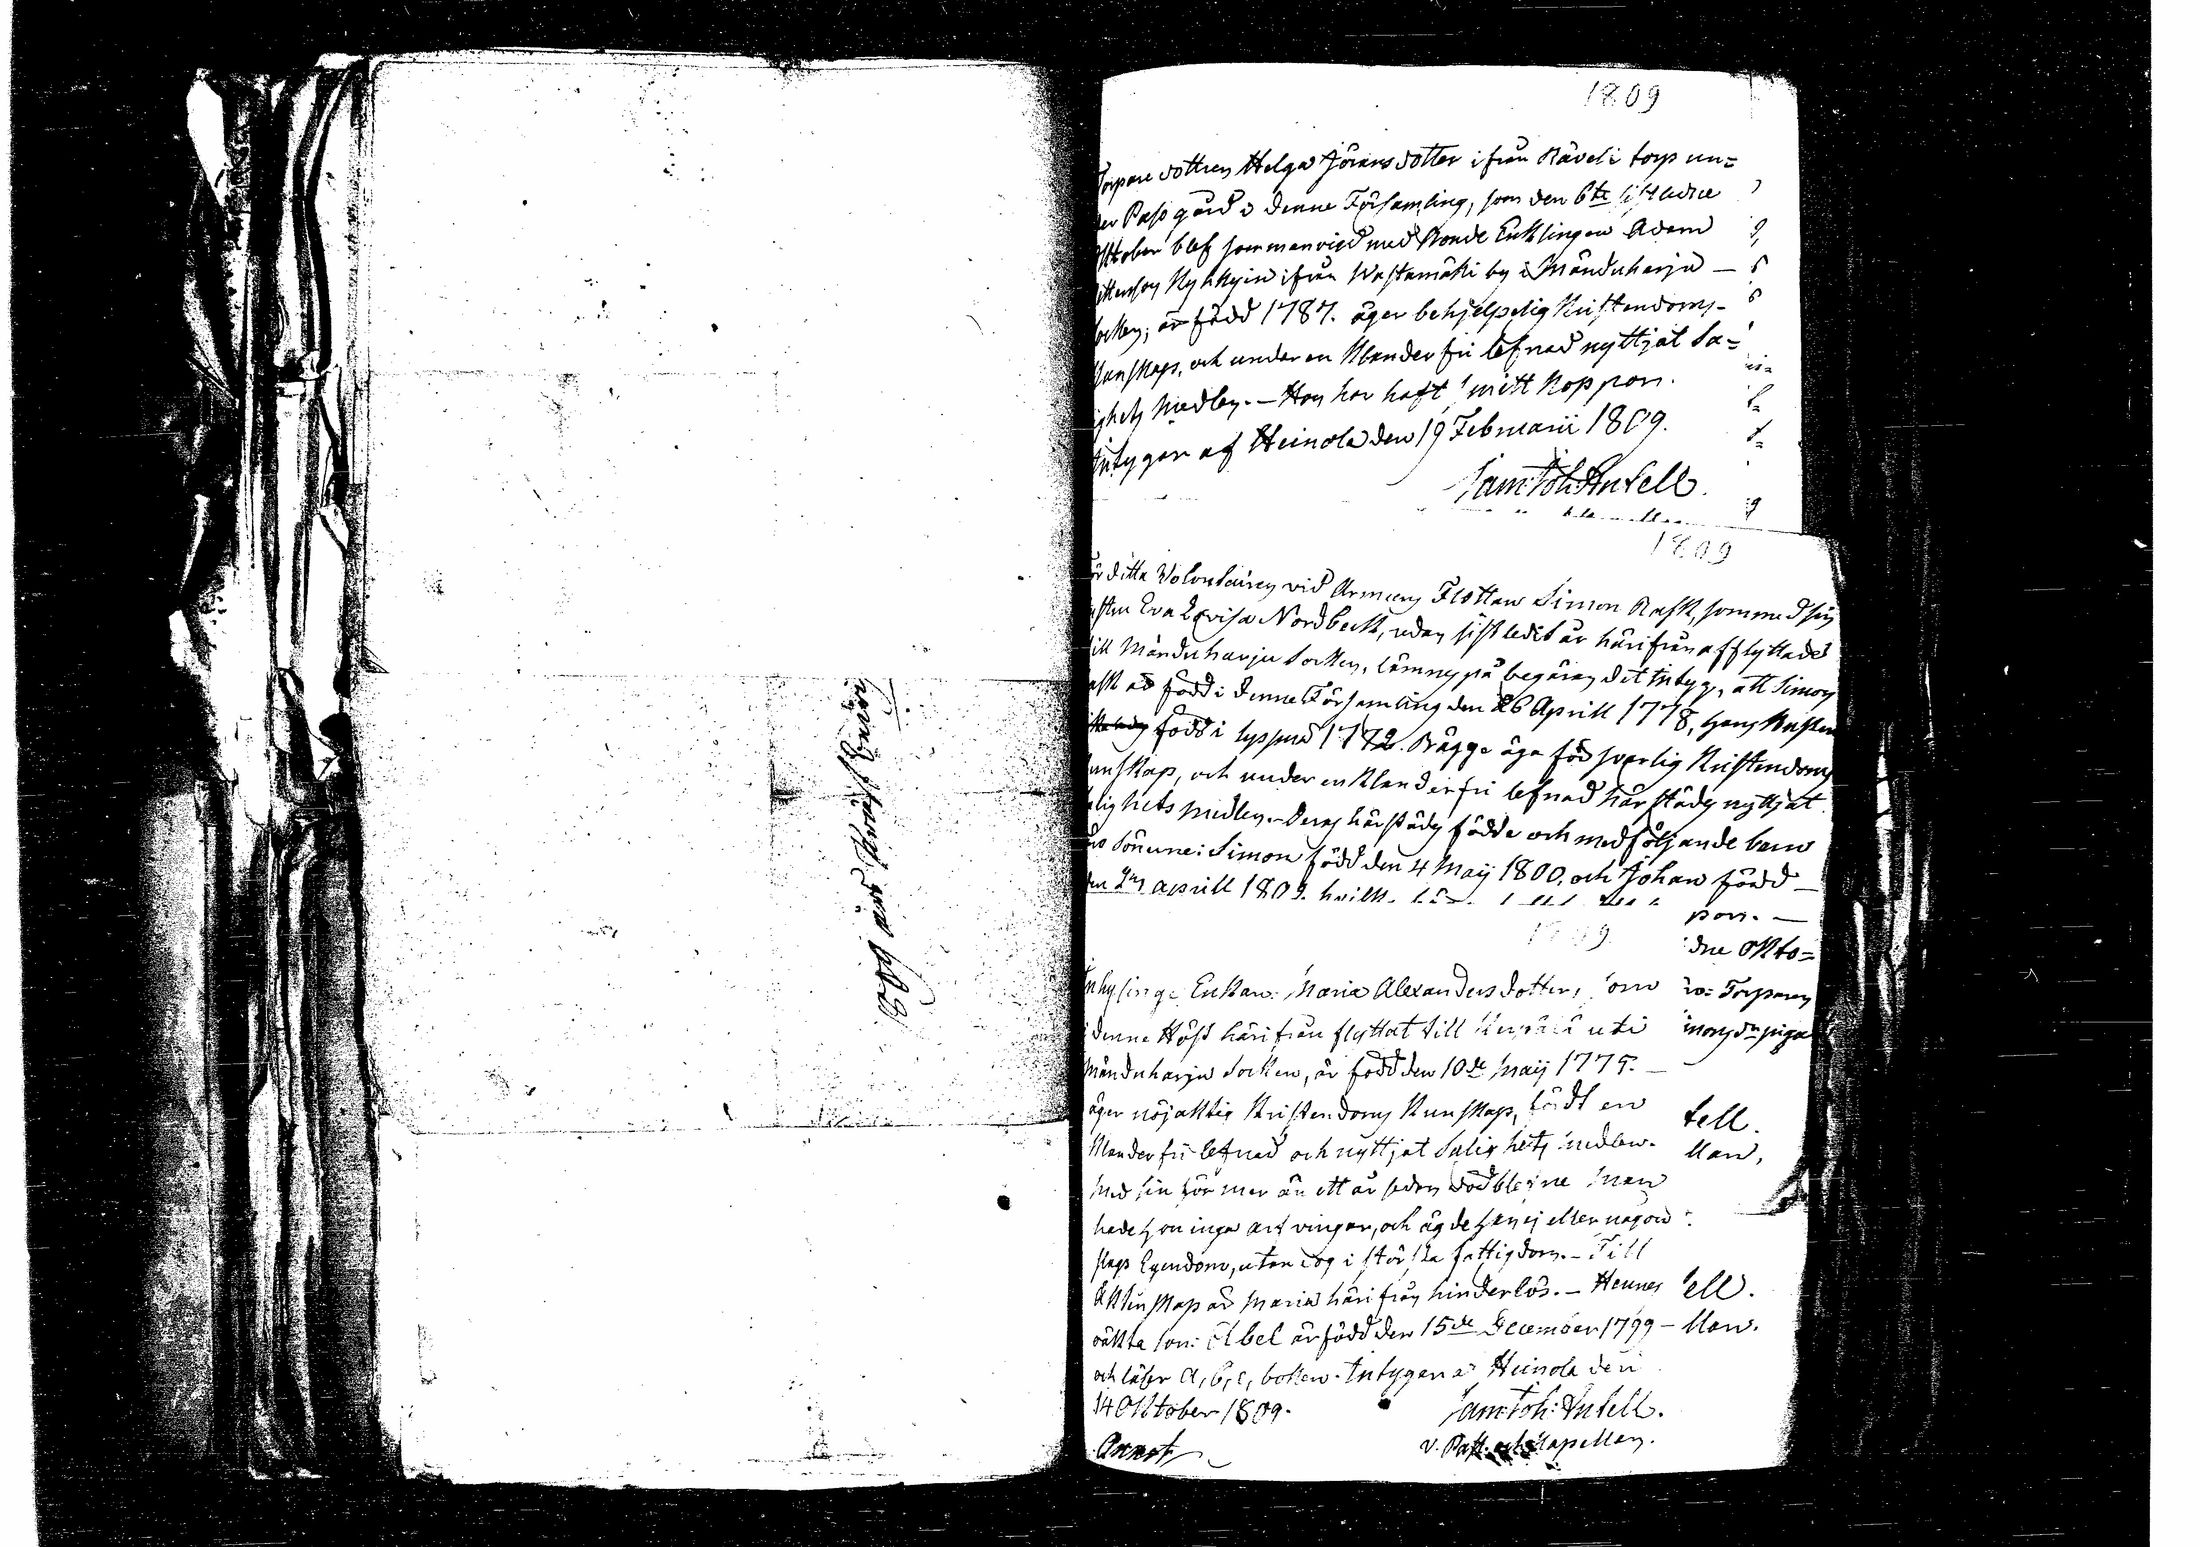 1809 års Präst Bevis
1809
Torpare dottren Helga Jöransdotter ifrån Räveli torp un=
der Pass gård i denne Församling, som den 6te sistledne
Oktober blef sammanvigd med Bonde Enklingen Adam
Kykkyin ifrån Wastamäki by i Mänduharju —
Socken; är född 1787. äger behjelpelig Kristendoms-
kunskap, och under en klanderfri lefnad nyttjat Sa=
lighets medlen. — Hon har haft koppor.
Intygar af Heinola den 19 Februarii 1809.
Sam: Joh: Antell.
1809
Volontairen vid Armeens Flottan Simon Rask, som med sin
hustru Eva Lovisa Nordbeck, redan sistledit år härifrån afflyttadet
till Mänduharju Socken, lämnas på begäran det intyg, att Simon
Rask är född i denne Församling den 26 Aprill 1778, hans Hustru
född i 1772. Bägge äga försvarlig Kristendoms
kunskap, och under en klanderfri lefnad härstädes nyttjat
Salighets medlen. Deras härstädes födde och medföljande barn
Sönerne: Simon född den 4 Maij 1800, och Johan född —
den aprill 1809.
1809
pors. —
dne Okto=
Inhysinge Enkan: Maria Alexandersdotter, som
Torparen
denne Höst härifrån flyttat till uti
piga
Mänduharju Socken, är född den 10de Maij 1775. —
äger nöjaktig Kristendoms Kunskap, fördt en
tell.
klanderfri lefnad och nyttjat Salighets medlen.
llan,
Med sin för mer än ett år sedan dödblefne Man
hade hon inga arfvingar, och ägde han ej eller någon
slags Egendom, utan dog i största fattigdom. — Till
Äktenskap är Maria härifrån hinderlös. — Hennes
ell.
oäkta son: Abel är född den 15de December 1799 —
llan.
och läser a, b, c, boken. Intygar Heinola den
14 Oktober 1809.
Sam: Joh: Antell.
v. Past. och Kapellan.